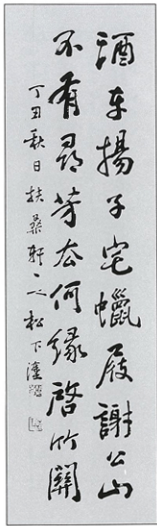 酒車揚子宅蠟屐謝公山
不有尋芳友何緣啓竹關
丁丑秋日扶桑軒松下